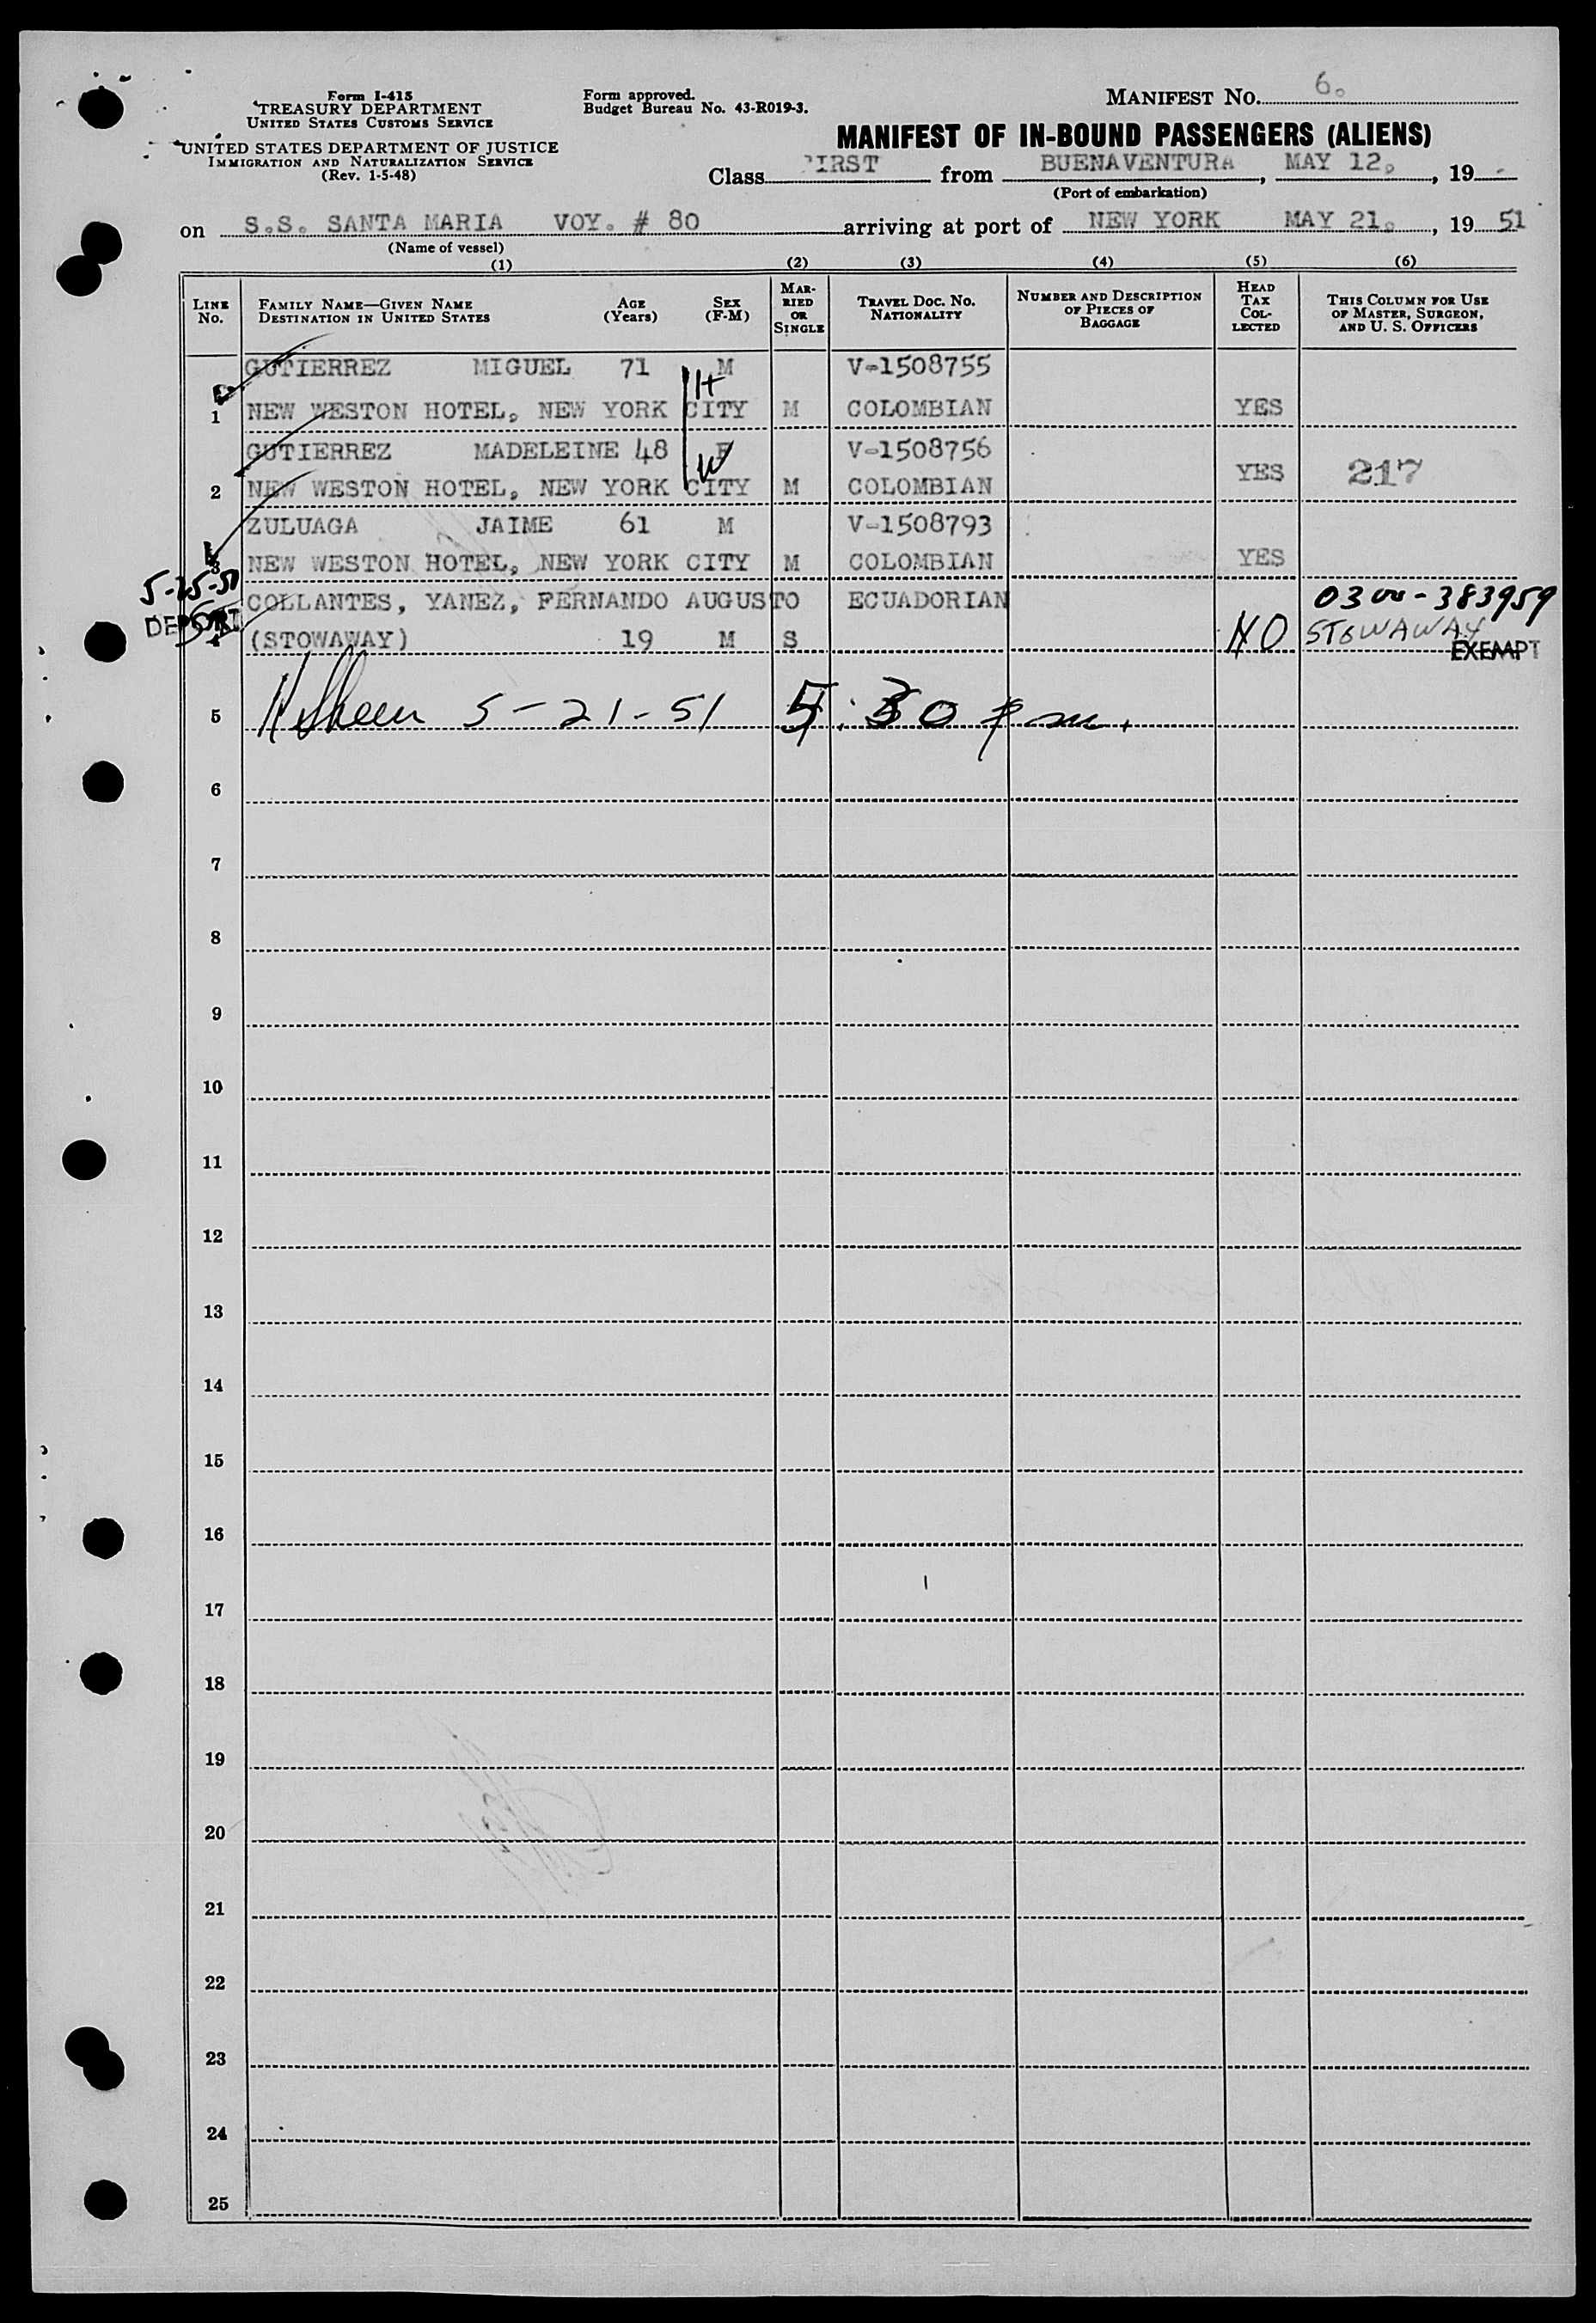 Form I-415
TREASURY DEPARTMENT
UNITED STATES CUSTOMS SERVICE
UNITED STATES DEPARTMENT OF JUSTICE
IMMIGRATION AND NATURALIZATION SERVICE
(Rev. 1-5-48)
Form approved.
Budget Bureau No. 43-R019-3.
MANIFEST NO. 6.
MANIFEST OF IN-BOUND PASSENGERS (ALIENS)
Class FIRST from BUENAVENTURA, MAY 12, 19
(Port of embarkation)
on S.S. SANTA MARIA VOY. # 80 arriving at port of NEW YORK MAY 21, 19 51
(Name of vessel)
(1) (2) (3) (4) (5) (6)
LINE NO.
FAMILY NAME—GIVEN NAME
DESTINATION IN UNITED STATES
AGE (Years)
SEX (F-M)
MARRIED OR SINGLE
TRAVEL DOC. NO. NATIONALITY
NUMBER AND DESCRIPTION OF PIECES OF BAGGAGE
HEAD TAX COLLECTED
THIS COLUMN FOR USE OF MASTER, SURGEON, AND U. S. OFFICERS
GUTIERREZ MIGUEL 71 M V-1508755
H
1 NEW WESTON HOTEL, NEW YORK CITY M COLOMBIAN YES
GUTIERREZ MADELEINE 48 F V-1508756
W
2 NEW WESTON HOTEL, NEW YORK CITY M COLOMBIAN YES 217
ZULUAGA JAIME 61 M V-1508793
3 NEW WESTON HOTEL, NEW YORK CITY M COLOMBIAN YES
5-25-51
COLLANTES, YANEZ, FERNANDO AUGUSTO ECUADORIAN 0300-383959
DEPORT
4 (STOWAWAY) 19 M S NO STOWAWAY
EXEMPT
5 5-21-51 5:30 pm.
6
7
8
9
10
11
12
13
14
15
16
17
18
19
20
21
22
23
24
25